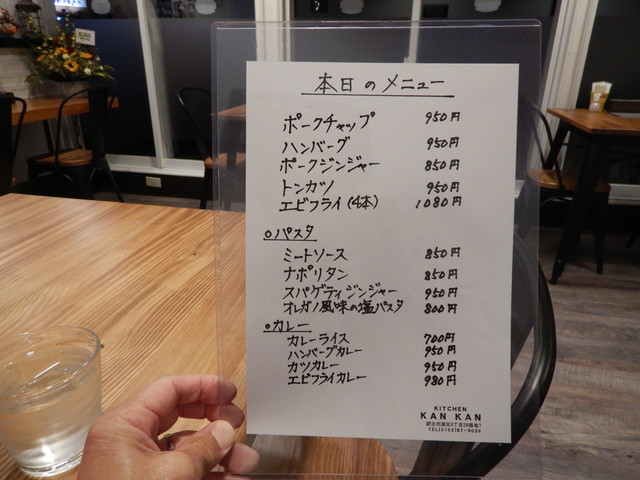 本日のメニュー
ポークチャップ 950円
ハンバーグ 950円
ポークジンジャー 850円
トンカツ 950円
エビフライ(4本) 1080円
○パスタ
ミートソース 850円
ナポリタン 850円
スパゲティジンジャー 950円
オレガノ風味の塩パスタ 800円
○カレー
カレーライス 700円
ハンバーグカレー 950円
カツカレー 950円
エビフライカレー 980円
KITCHEN
KAN KAN